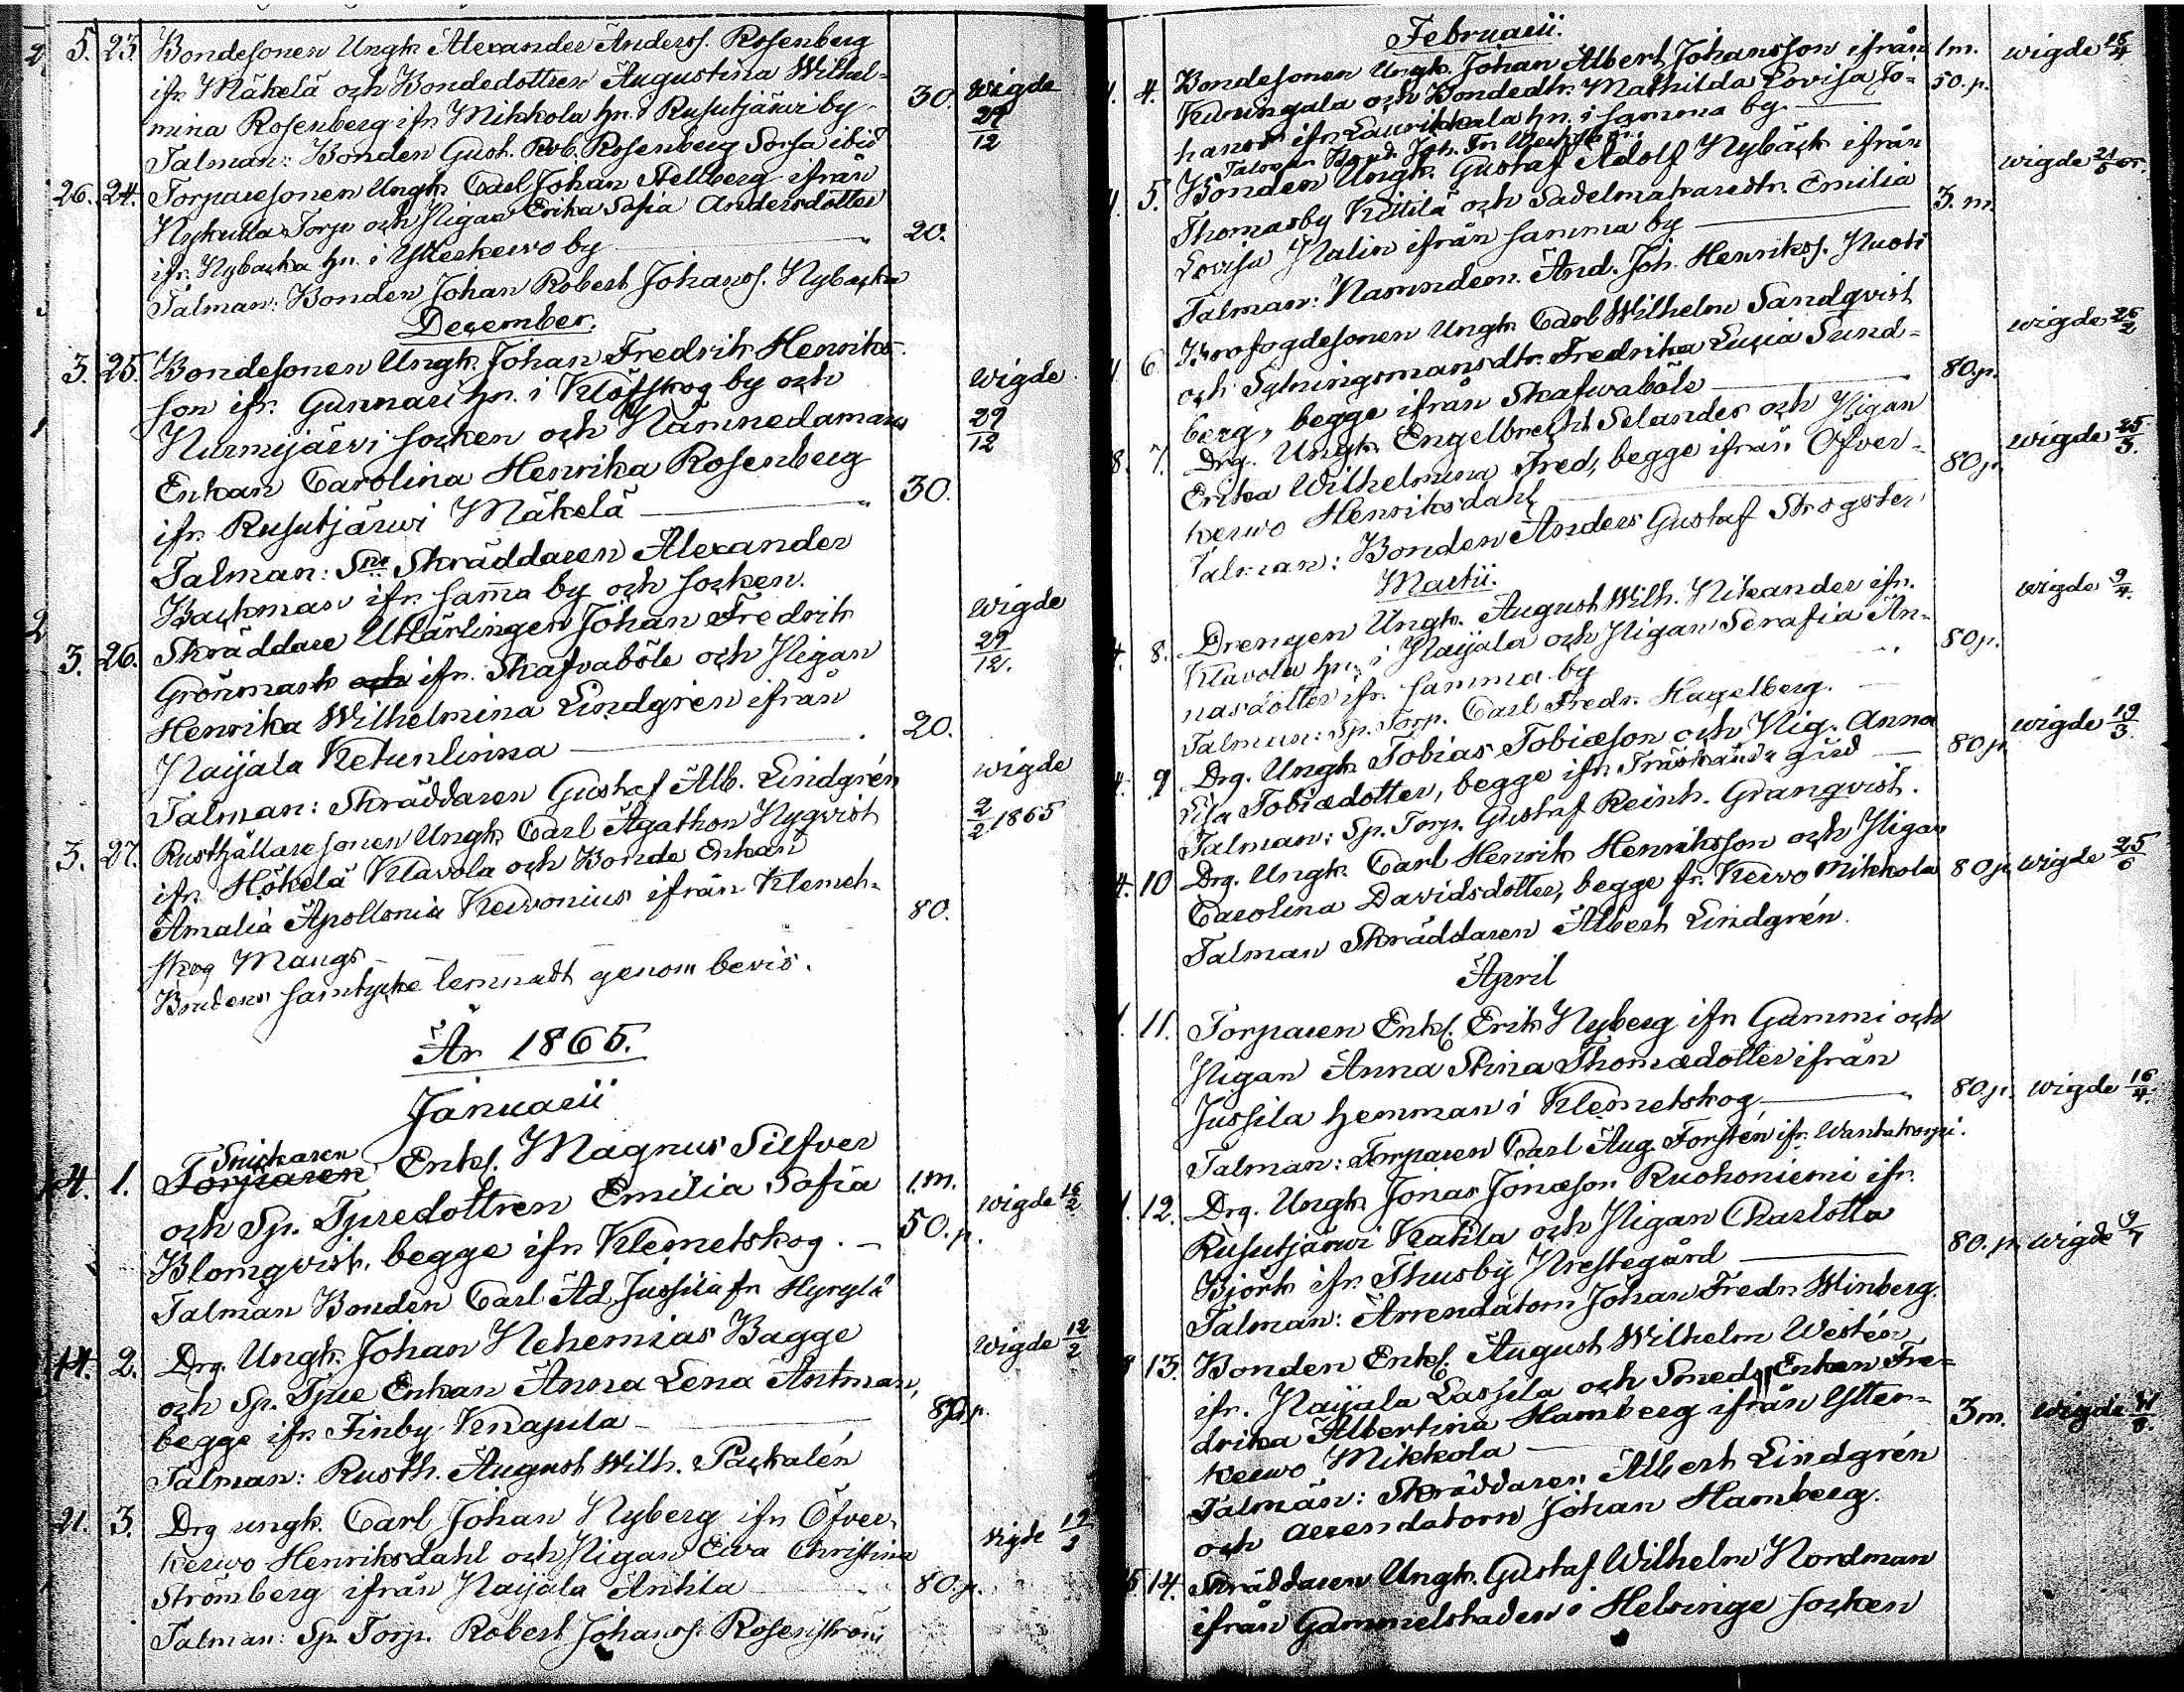 5. 23. Bondesonen Ungk. Alexander Anderss. Rosenberg
ifr. Mäkelä och Bondedottren Augustina Wilhel-
mina Rosenberg ifr. Mikkola hn. i Rusutjärwi by 30. wigde 29/12
Talman: Bonden Gust. Rob. Rosenberg Sorsa ibid
26. 24. Torparesonen Ungk. Carl Johan Stellberg ifrån
Nykulla Torp och Pigan Erika Sofia Andersdotter
ifr. Nybacka hn. i Ytterkerwo by 20.
Talman: Bonden Johan Robert Johanss. Nybacka
December.
3. 25. Bondesonen Ungk. Johan Fredrik Henriks-
son ifr. Gunnari hn. i Klöfskog by och
Nurmijärvi socken och Nämnedamans wigde 29/12
Enkan Carolina Henrika Rosenberg
ifr. Rusutjärwi Mäkelä 30.
Talman: Sne Skräddaren Alexander
Backman ifr. samma by och socken.
3. 26. Skräddare Utlärlingen Johan Fredrik wigde 29/12.
Grönmark och ifr. Skafvaböle och Pigan
Henrika Wilhelmina Lindgrén ifrån
Paijala Ketunlinna 20.
Talman: Skräddaren Gustaf Alb. Lindgrén
3. 27. Rusthållaresonen Ungk. Carl Agathon Nyqvist wigde 2/2 1865
ifr. Hökelä Klavola och Bonde Enkan
Amalia Apollonia Kerwonius ifrån Klemet-
skog Mangs 80.
Brudens samtycke lemnadt genom bevis.
År 1865.
Januarii
Snickaren
14. 1. Torparen Enkl. Magnus Silfver
och Sp. Tpredottren Emilia Sofia 1.m.
Blomqvist, begge ifr. Klemetskog. 50.p. wigde 16/2
Talman Bonden Carl Ad. Jussila fr. Hyrylä
14. 2. Drg. Ungk. Johan Nehemias Bagge wigde 12/2
och Sp. Tpre Enkan Anna Lena Antman,
begge ifr. Finby Knapula 80.p.
Talman: Rusth. August Wilh. Packalén
21. 3. Drg ungk. Carl Johan Nyberg ifr. Öfver-
kerwo Henriksdahl och Pigan Eva Christina vigde 19/3
Strömberg ifrån Paijala Anttila 80.p.
Talman: Sp. Torp. Robert Johanss. Rosenström
Februarii.
4. Bondesonen Ungk. Johan Albert Johansson ifrån 1m. wigde 15/4
och Bondedtr. Mathilda Lovisa Jo- 50.p.
hansdr ifr. Laurikkala hn. i samma by
Talman Bond. Joh. Fr.
5. Bonden Ungk. Gustaf Adolf Nybäck ifrån wigde 21/5
Thomasby Kittilä och Sadelmakaredtr. Emilia
Lovisa Malin ifrån samma by 3. m.
Talman: Nämndem. And. Joh. Henrikss. Nuoti
6 Brofogdesonen Ungk. Carl Wilhelm Sandqvist wigde 26/2
och Sytningsmansdtr. Fredrika Lucia Sund-
berg, begge ifrån Skafwaböle 80.p.
8. 7. Drg. Ungk. Engelbrecht Selander och Pigan
Erika Wilhelmina Fred, begge ifrån Öfver- 80 p. wigde 25/3.
kerwo Henriksdahl
Talman: Bonden Anders Gustaf Skogster
Martii.
4. 8. Drengen Ungk. August Wilh. Nikander ifr. wigde 9/4.
Klavola hn. i Paijala och Pigan Serafia An- 80 p.
nasdotter ifr. samma by
Talman: Sp. Torp. Carl Fredr. Hagelberg.
4. 9 Drg. Ungk. Tobias Tobiæson och Pig. Anna wigde 19/3
Lisa Tobiædotter, begge ifr. Träskända gård 80 p.
Talman: Sp. Torp. Gustaf Reinh. Granqvist.
4. 10 Drg. Ungk. Carl Henrik Henriksson och Pigan
Carolina Davidsdotter, begge fr. Kerwo Mikkola 80 p. wigde 25/6
Talman Skräddaren Albert Lindgrén.
April
11. Torparen Enkl. Erik Nyberg ifr. Gammi och
Pigan Anna Stina Thomædotter ifrån
Jussila hemman i Klemetskog 80.p. wigde 16/4.
Talman: Torparen Carl Aug. Forstén ifr. Wantakorpi.
12. Drg. Ungk. Jonas Jonæson Ruohoniemi ifr.
Rusutjärwi Kahla och Pigan Charlotta
Björk ifr. Thusby Prestegård 80. p. wigde 9/7
Talman: Arrendatorn Johan Fredr. Winberg.
8 13. Bonden Enkl. August Wilhelm Westén
ifr. Paijala Lassila och Smeds Enkan Fre-
drika Albertina Hamberg ifrån Ytter-
kerwo Mikkola 3m. wigde
Talman: Skräddaren Albert Lindgrén
och Arrendatorn Johan Hamberg.
14. Skräddaren Ungk. Gustaf Wilhelm Nordman
ifrån Gammelstaden i Helsinge socken